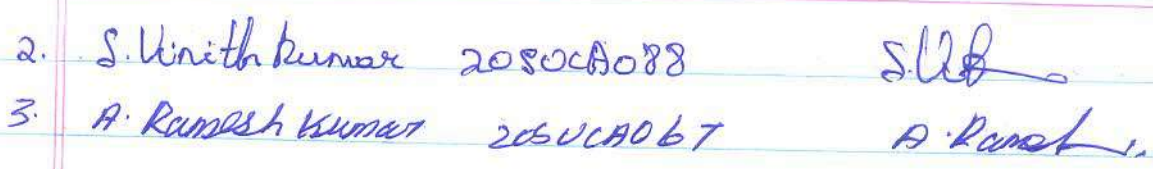 2. S. Vinith Kumar 20SUCA088 S.V
3. A. Ramesh Kumar 20SUCA067 A. Ramesh